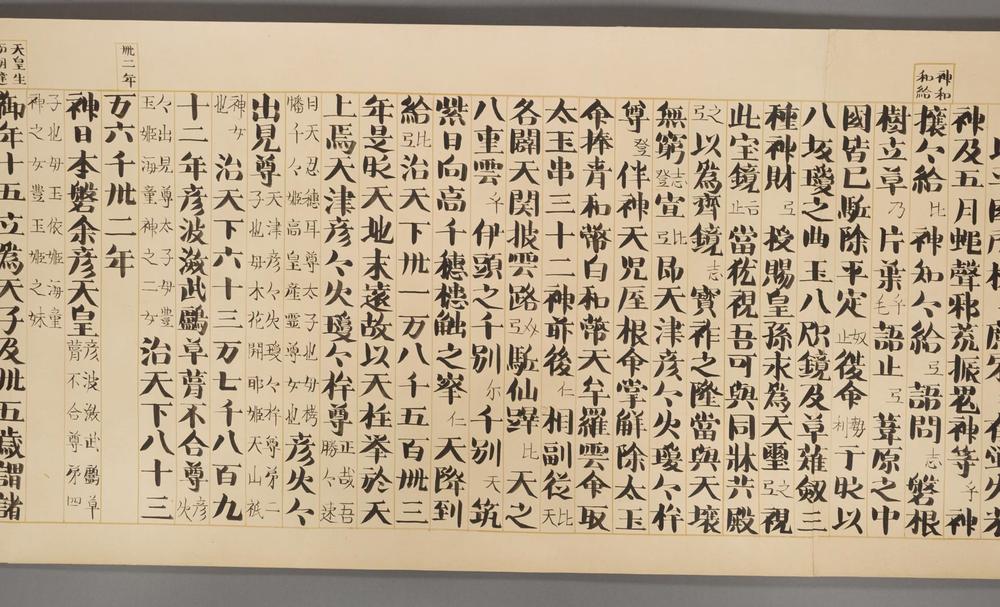 神和
和給
神及五月蠅聲邪荒振惡神等予神
攘々給比神和々給互語問志磐根
樹立草乃片葉毛千語止互葦原之中
國皆已駈除平定止奴復命利勢丁時以
八坂瓊之曲玉八咫鏡及草薙劔三
種神財互授賜皇孫永為天璽引之視
此宝鏡止后當猶視吾可與同牀共殿
引之以為齊鏡志寳祚之隆當與天壤
無窮登志宣引比即天津彦々火瓊々杵
尊登伴神天児屋根命掌解除太玉
命捧青和幣白和幣天牟羅雲命取
太玉串三十二神前後仁相副從天比
各闢天関披雲路駈仙蹕比天之
八重雲千伊頭之千別尓千別天筑
紫日向高千穂槵觸之峯仁天降到
給引比治天下卅一万八千五百卅三
年是時天地未遠故以天柱挙於天
上焉天津彦々火瓊々杵尊正哉吾勝々速
日天忍穂耳尊太子也母栲幡千々姫高皇産靈尊女也彦火々
出見尊天津彦々火瓊々杵尊第二子也母木花開耶姫天山祇
神女也治天下六十三万七千八百九
十二年彦波瀲武鸕草葺不合尊彦火
々出見尊太子母豊玉姫海童神之二女治天下八十三
卅二年
万六千卅二年
神日本磐余彦天皇彦波瀲武鸕草葺不合尊第四
子也母玉依姫海童神之女豊玉姫之妹
天皇生
御年十五立為天子及卅五歳謂諸